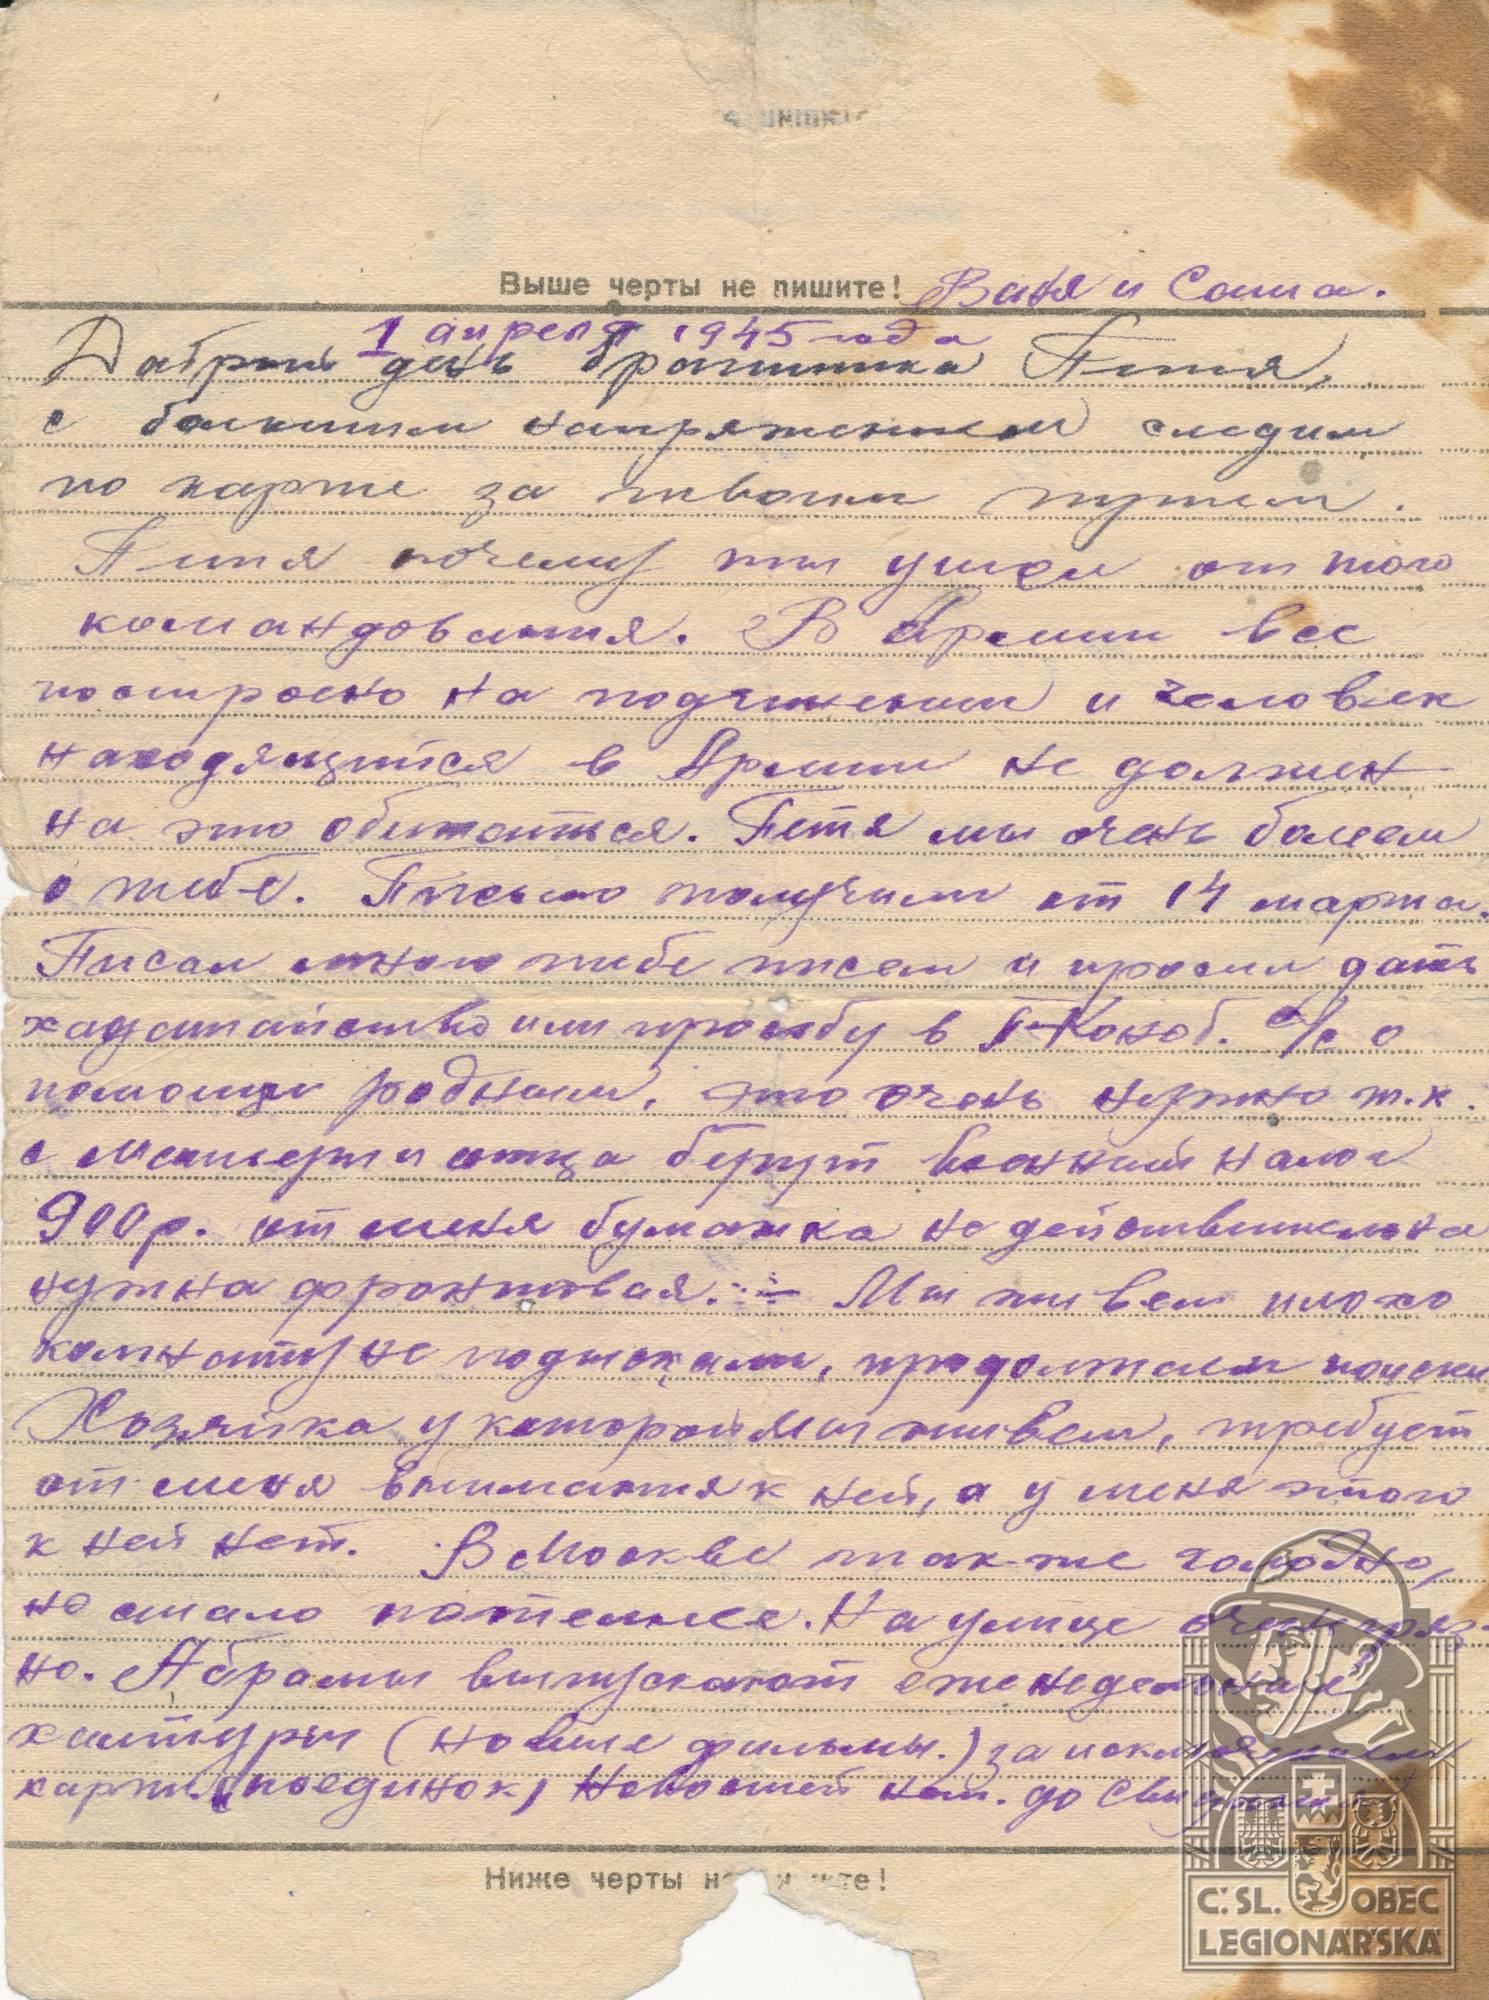 Выше черты не пишите! Ваня и Саша.
1 апреля 1945 года
Дабрый день братишка Петя,
с большим напряжением следим
по карте за твоим путем.
Петя почему ты ушел от того
командования. В Армии все
построено на подчинении и человек
находящийся в Армии не должен
на это обижаться. Петя мы очень болеем
о тебе. Письмо получили от 14 марта.
Писал много тебе писем и просил дать
хадатайство или просьбу в с/с о
помощи родным, это очень нужно т.к.
с матери и отца берут военный налог
900р. от меня бумажка не действительна
нужна фронтовая. Мы живем плохо
комнату не подыскали, продолжаем поиски
Хозяйка у которой мы живем, требует
от меня внимания к ней, а у меня этого
к ней нет. В Москве так-же холодно,
но стало потеплее. На улице очень гряз-
но. Абрамы выпускают еженедельные
халтуры (новые фильмы.) за исключением
карт. (поединок) Новостей нет. до свидания
Ниже черты не пишите!
Č. SL. OBEC
LEGIONÁŘSKÁ